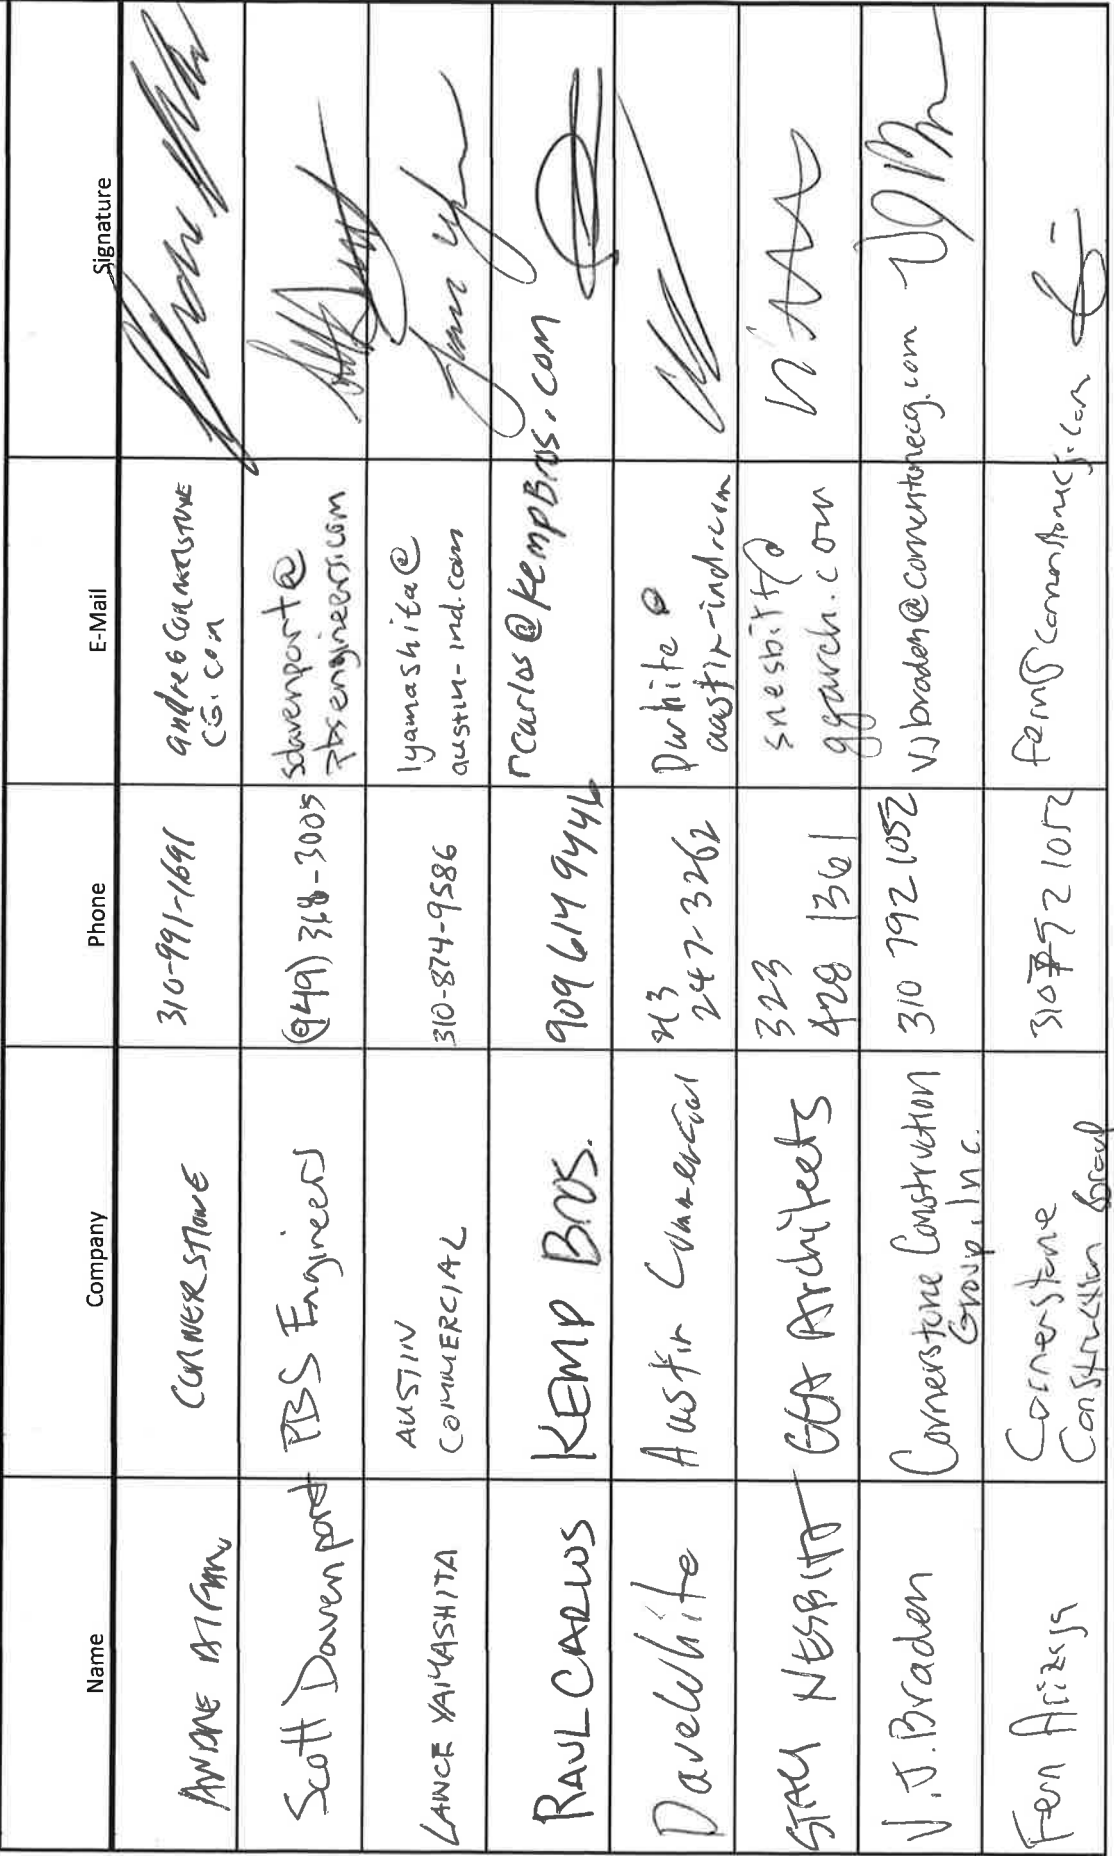 Name Company Phone E-Mail Signature
ANDRE CORNERSTONE 310-991-1691 andre@cornerstone
cg.com
Scott Davenport PBS Engineers (949) 368-3005 sdavenport@
pbsengineers.com
LANCE YAMASHITA AUSTIN
COMMERCIAL 310-874-9586 lyamashita@
austin-ind.com
RAUL CARLOS KEMP BROS. 909 614 9446 rcarlos@kempBros.com
Dave White Austin Commercial 213
247-3262 Dwhite@
austin-ind.com
STACY NESBITT GGA Architects 323
428 1361 snesbitt@
ggarch.com
V.J. Braden Cornerstone Construction
Group, Inc. 310 792 1052 vjbraden@cornerstonecg.com
Fern Arizaga Cornerstone
Construction Group 310 792 1052 fern@cornerstonecg.com